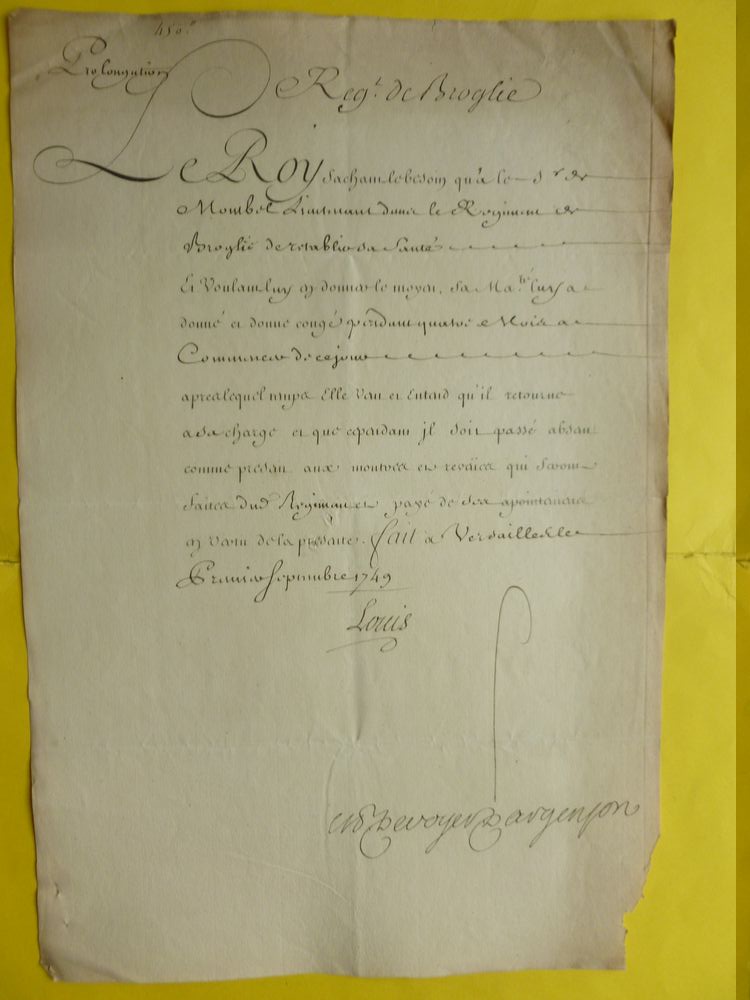 Prolongation
Reg.t de Broglie
Le Roy sachant le besoin qu'a le S.r de
Monbel Lieutenant dans le Regiment de
Broglie de retablir sa Santé
Et Voulant luy en donner le moyen, Sa Ma.té luy a
donné et donne congé pendant quatre Mois a
Commencer de ce jour
apres lequel temps Elle Veut et Entend qu'il retourne
a sa charge et que cependant jl soit passé absent
comme present aux montres et reveües qui seront
faites dud. Regiment et payé de ses apointemens
en vertu de la presente. fait a Versailles le
Premier Septembre 1749
Louis
De voyer D'argenson